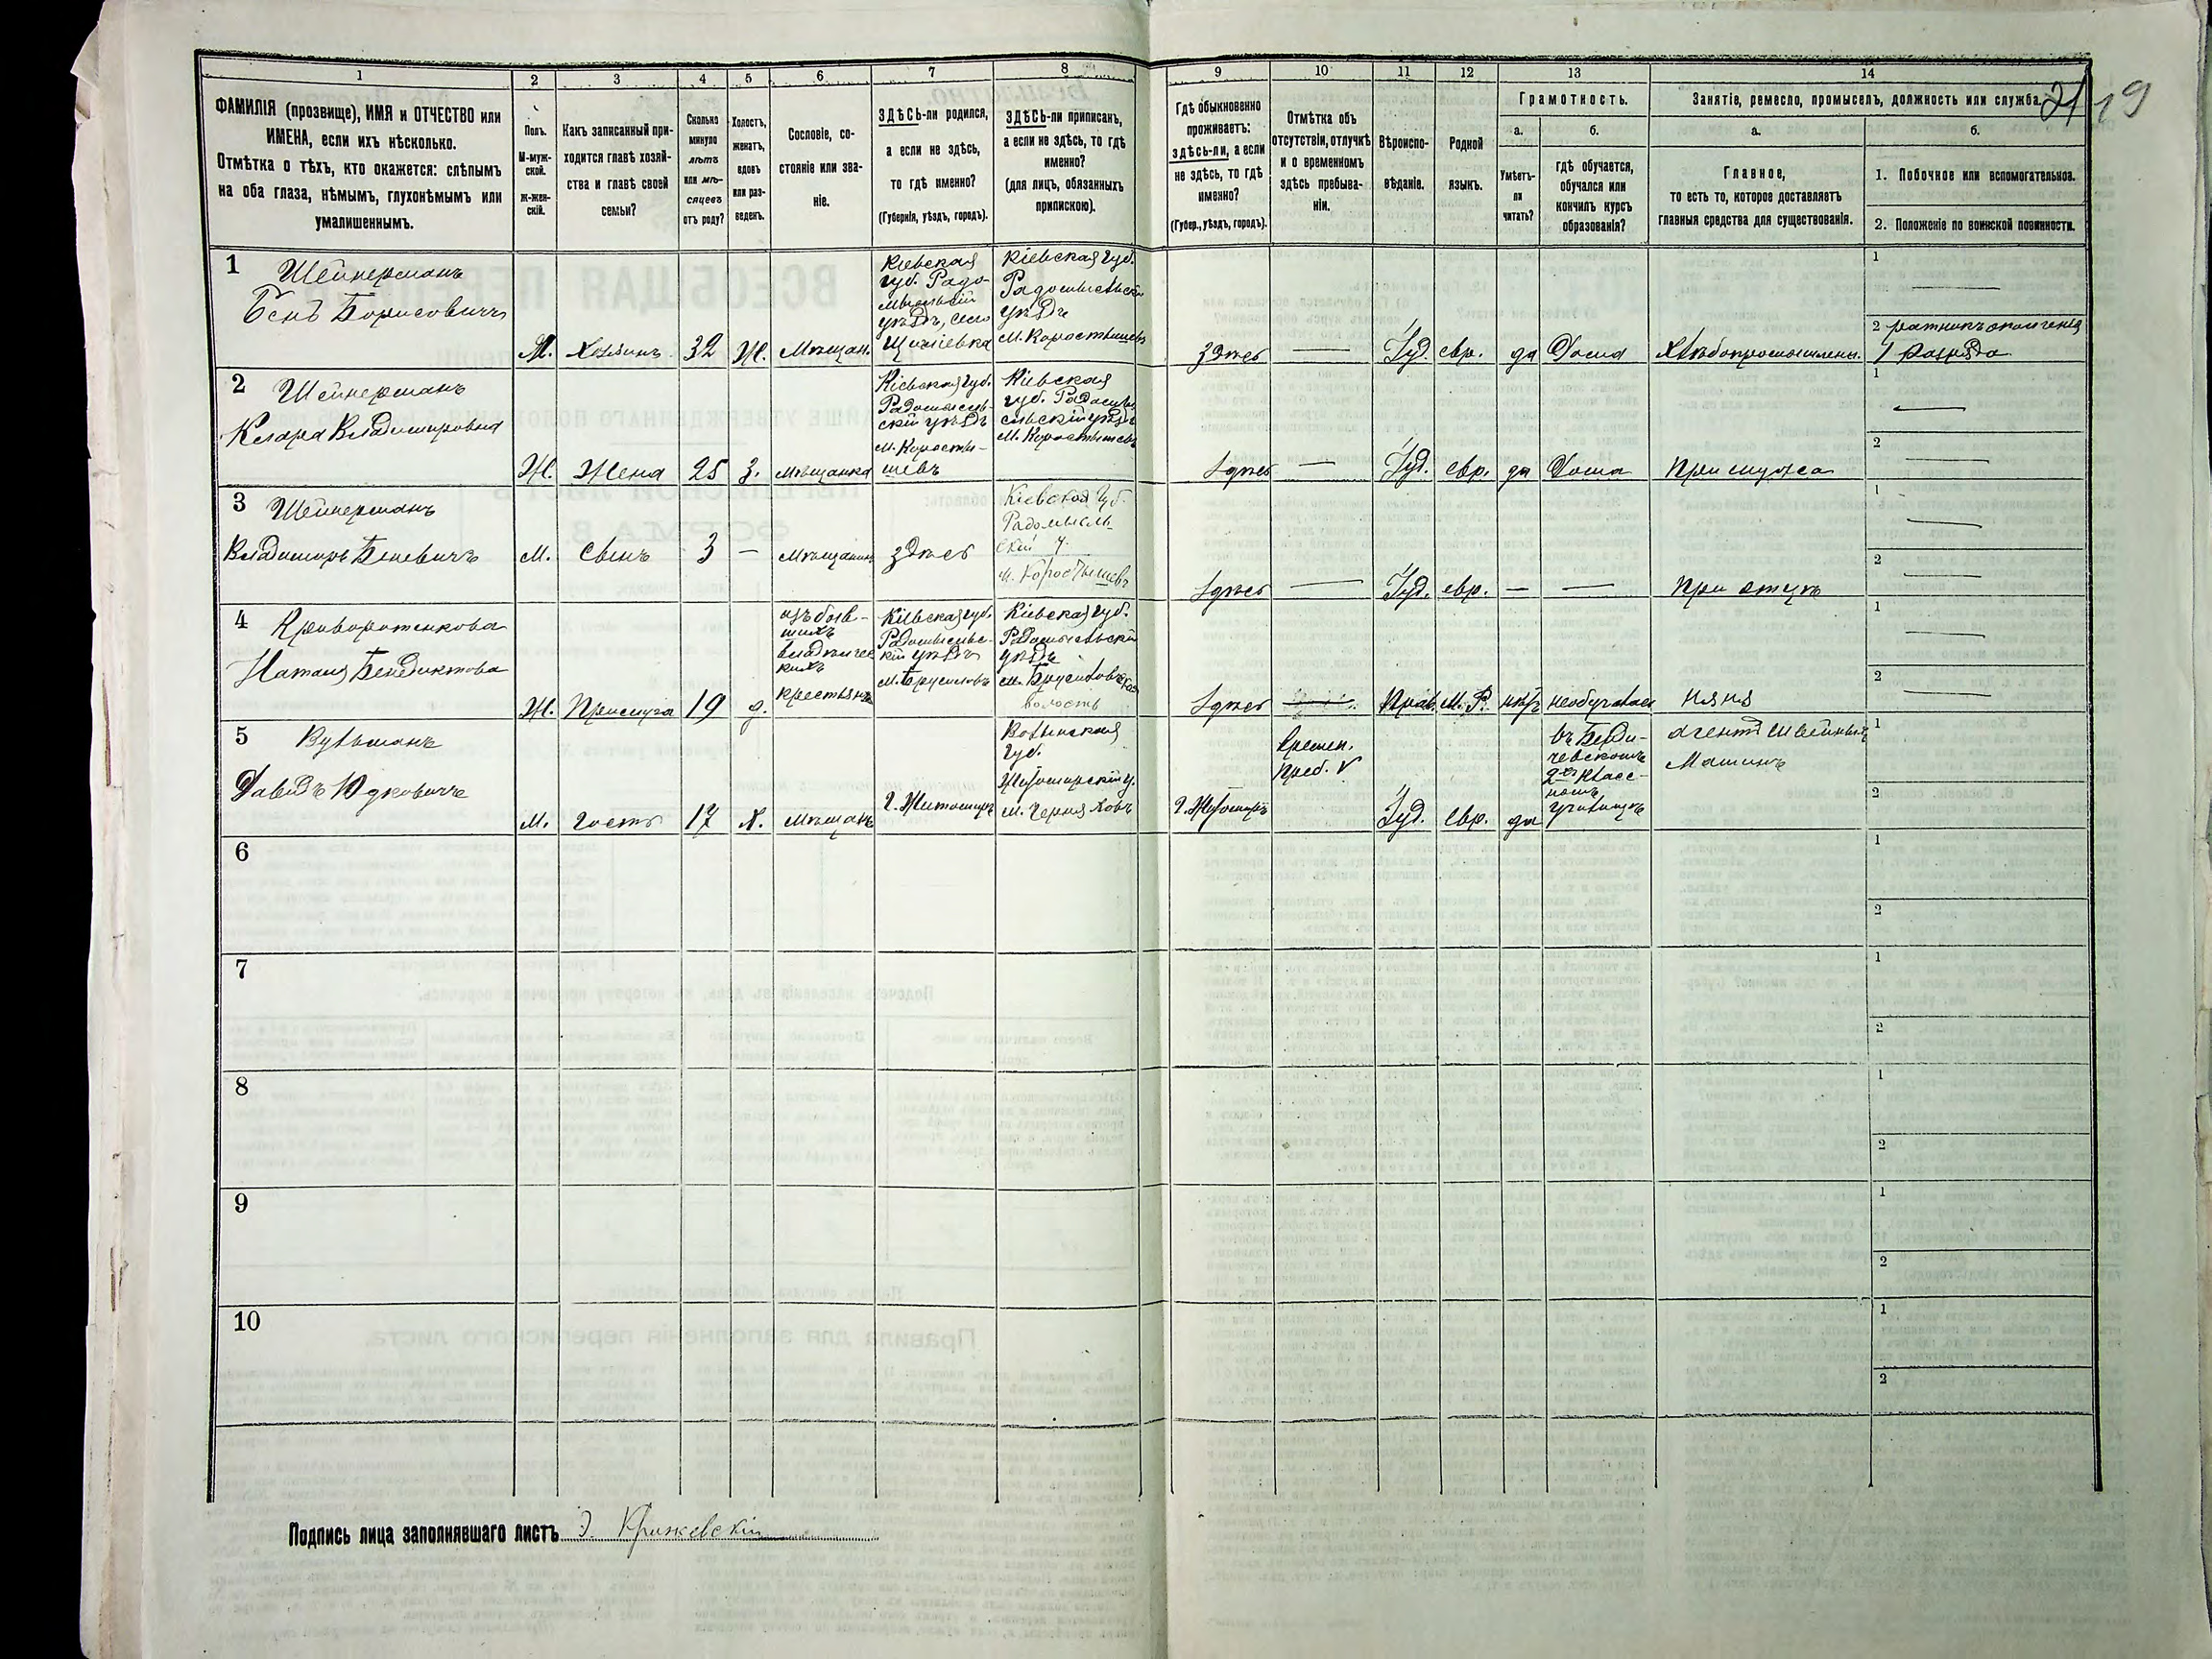 1
2
3
4
5
6
7
8
9
10
11
12
13
14
21
19
ФАМИЛІЯ (прозвище), ИМЯ и ОТЧЕСТВО или
ИМЕНА, если ихъ нѣсколько.
Отмѣтка о тѣхъ, кто окажется: слѣпымъ
на оба глаза, нѣмымъ, глухонѣмымъ или
умалишеннымъ.
Полъ.
М-муж-
ской.
ж-жен-
скій.
Какъ записанный при-
ходится главѣ хозяй-
ства и главѣ своей
семьи?
Сколько
минуло
лѣтъ
или мѣ-
сяцевъ
отъ роду?
Холостъ,
женатъ,
вдовъ
или раз-
веденъ.
Сословіе, со-
стояніе или зва-
ніе.
ЗДѢСЬ-ли родился,
а если не здѣсь,
то гдѣ именно?
(Губернія, уѣздъ, городъ).
ЗДѢСЬ-ли приписанъ,
а если не здѣсь, то гдѣ
именно?
(для лицъ, обязанныхъ
припискою).
Гдѣ обыкновенно
проживаетъ:
здѣсь-ли, а если
не здѣсь, то гдѣ
именно?
(Губер., уѣздъ, городъ).
Отмѣтка объ
отсутствіи, отлучкѣ
и о временномъ
здѣсь пребыва-
ніи.
Вѣроиспо-
вѣданіе.
Родной
языкъ.
Грамотность.
а.
Умѣетъ-
ли
читать?
б.
Гдѣ обучается,
обучался или
кончилъ курсъ
образованія?
Занятіе, ремесло, промыселъ, должность или служба.
а.
Главное,
то есть то, которое доставляетъ
главныя средства для существованія.
б.
1. Побочное или вспомогательное.
2. Положеніе по воинской повинности.
1 Шейнерманъ
Бенъ Борисовичъ
М.
Хозяинъ
32
Ж.
Мѣщан.
Кіевская
губ. Радо-
мысльскій
уѣздъ, село
Кіевская губ.
Радомысльскій
уѣздъ
м. Коростышевъ
здѣсь
—
Іуд.
евр.
да
Дома
Хлѣбопромышлен.
1
2 ратникъ ополченія
1 разряда
2 Шейнерманъ
Клара Владимировна
Ж.
Жена
25
З.
мѣщанка
Кіевская губ.
Радомысль-
скій уѣздъ
м. Коросты-
шевъ
Кіевская
губ. Радомы
сльскій уѣздъ
м. Коростышевъ
здѣсь
—
Іуд.
евр.
да
Дома
При мужѣ
1
2
3 Шейнерманъ
Владимиръ Беневичъ
М.
Сынъ
3
—
Мѣщанинъ
здѣсь
Кіевская Губ.
Радомысль-
скій у.
м. Коростышевъ
здѣсь
—
Іуд.
евр.
—
—
При отцѣ
1
2
4 Криворотенкова
Наталія Бенедиктова
Ж.
Прислуга
19
д.
изъ быв-
шихъ
владѣлчес
кихъ
крестьянъ
Кіевская губ.
Радомысль-
скій уѣздъ
м. Брусиловъ
Кіевская губ.
Радомысльскій
уѣздъ
м. Брусиловская
волость
здѣсь
Прав.
М. Р.
нѣтъ
необучалась
няня
1
2
5 Вульманъ
Давидъ Юдковичъ
М.
Гость
17
Х.
Мѣщанъ
Г. Житомиръ
Волынская
губ.
Житомирскій у.
м. Черняховъ
Г. Житомиръ
Времен.
Преб. V
Іуд.
Евр.
да
въ Берди-
чевскомъ
2-хъ класс-
номъ
училищѣ
агентъ Швейныхъ
Машинъ
1
2
6
1
2
7
1
2
8
1
2
9
1
2
10
1
2
Подпись лица заполнявшаго листъ Э. Крижевскій